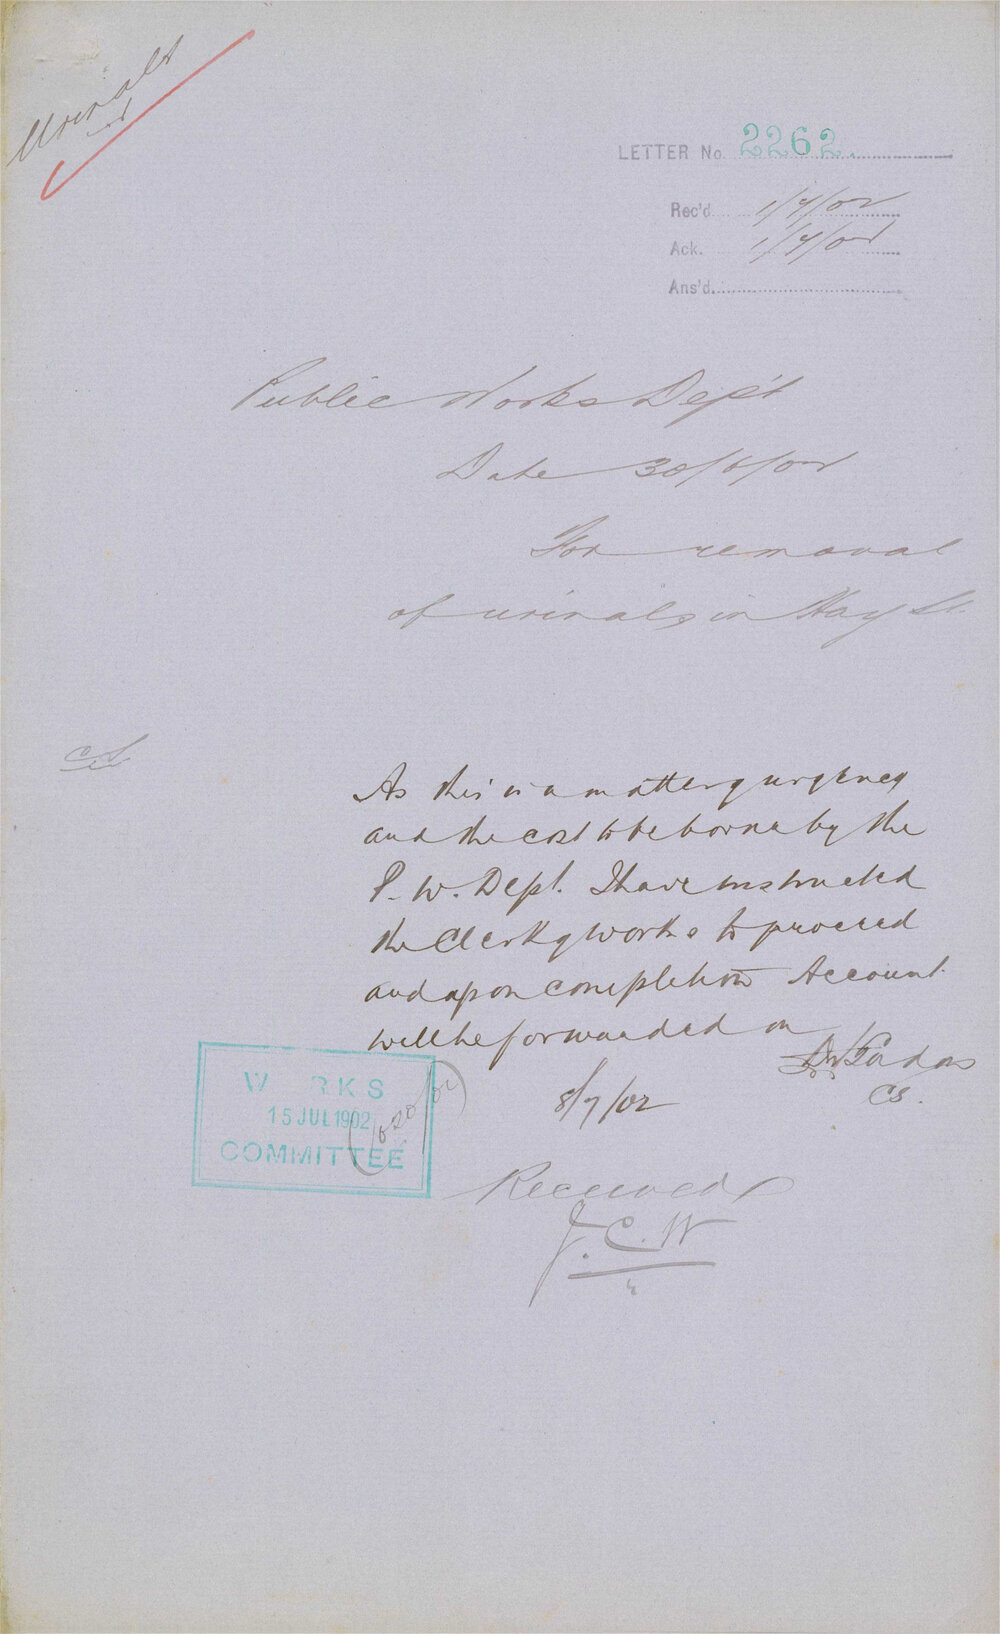 Urinals
LETTER No. 2262.
Rec'd 1/7/02
Ack. 1/7/02
Ans'd.
Public Works Dept
Date 30/6/02
For removal
of urinals in Hay St.
CS
As this is a matter of urgency
and the cost to be borne by the
P. W. Dept. I have instructed
the Clerk of works to proceed
and upon completion Account
will be forwarded on
CS.
8/7/02
WORKS
15 JUL 1902
COMMITTEE
(1620/02)
Received
J. C. W